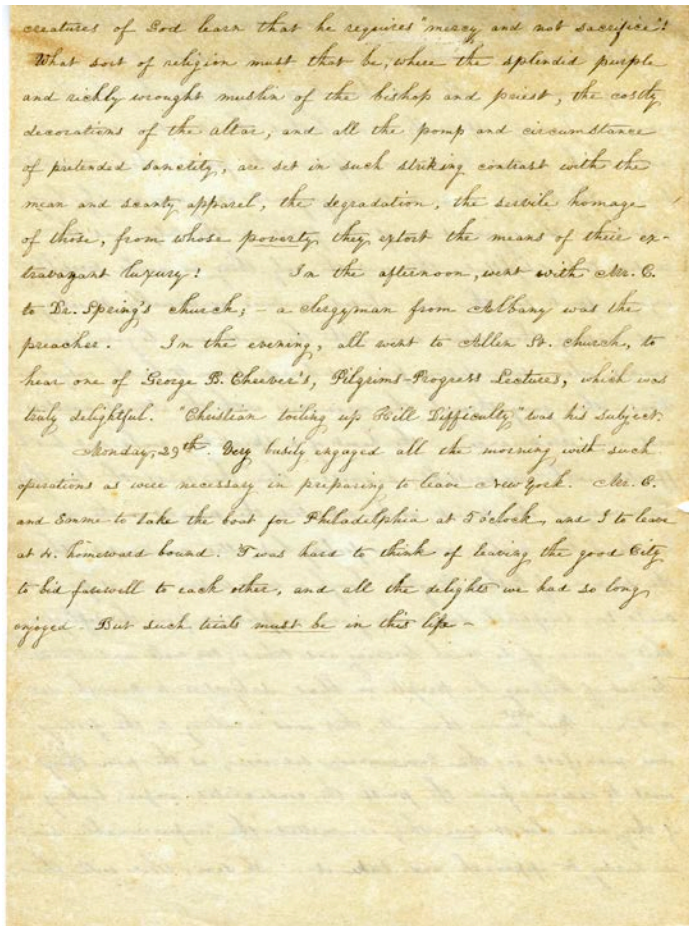 creatures of God learn that he requires "mercy and not sacrifice"!
What sort of religion must that be, where the splendid purple
and richly wrought muslin of the bishop and priest, the costly
decorations of the altar, and all the pomp and circumstance
of pretended sanctity, are set in such striking contrast with the
mean and scanty apparel, the degradation, the servile homage
of those, from whose poverty they extort the means of their ex-
travagant luxury! In the afternoon, went with Mr. C.
to Dr. Spring's church; - a clergyman from Albany was the
preacher. In the evening, all went to Allen St. church, to
hear one of George B. Cheever's, Pilgrims-Progress Lectures, which was
truly delightful. "Christian toiling up Hill Difficulty" was his subject.
Monday, 29th. Very busily engaged all the morning with such
operations as were necessary in preparing to leave New York. Mr. C.
and Emme to take the boat for Philadelphia at 5 o'clock, and I to leave
at 4. homeward bound. 'Twas hard to think of leaving the good City
to bid farewell to each other, and all the delights we had so long
enjoyed. But such trials must be in this life -